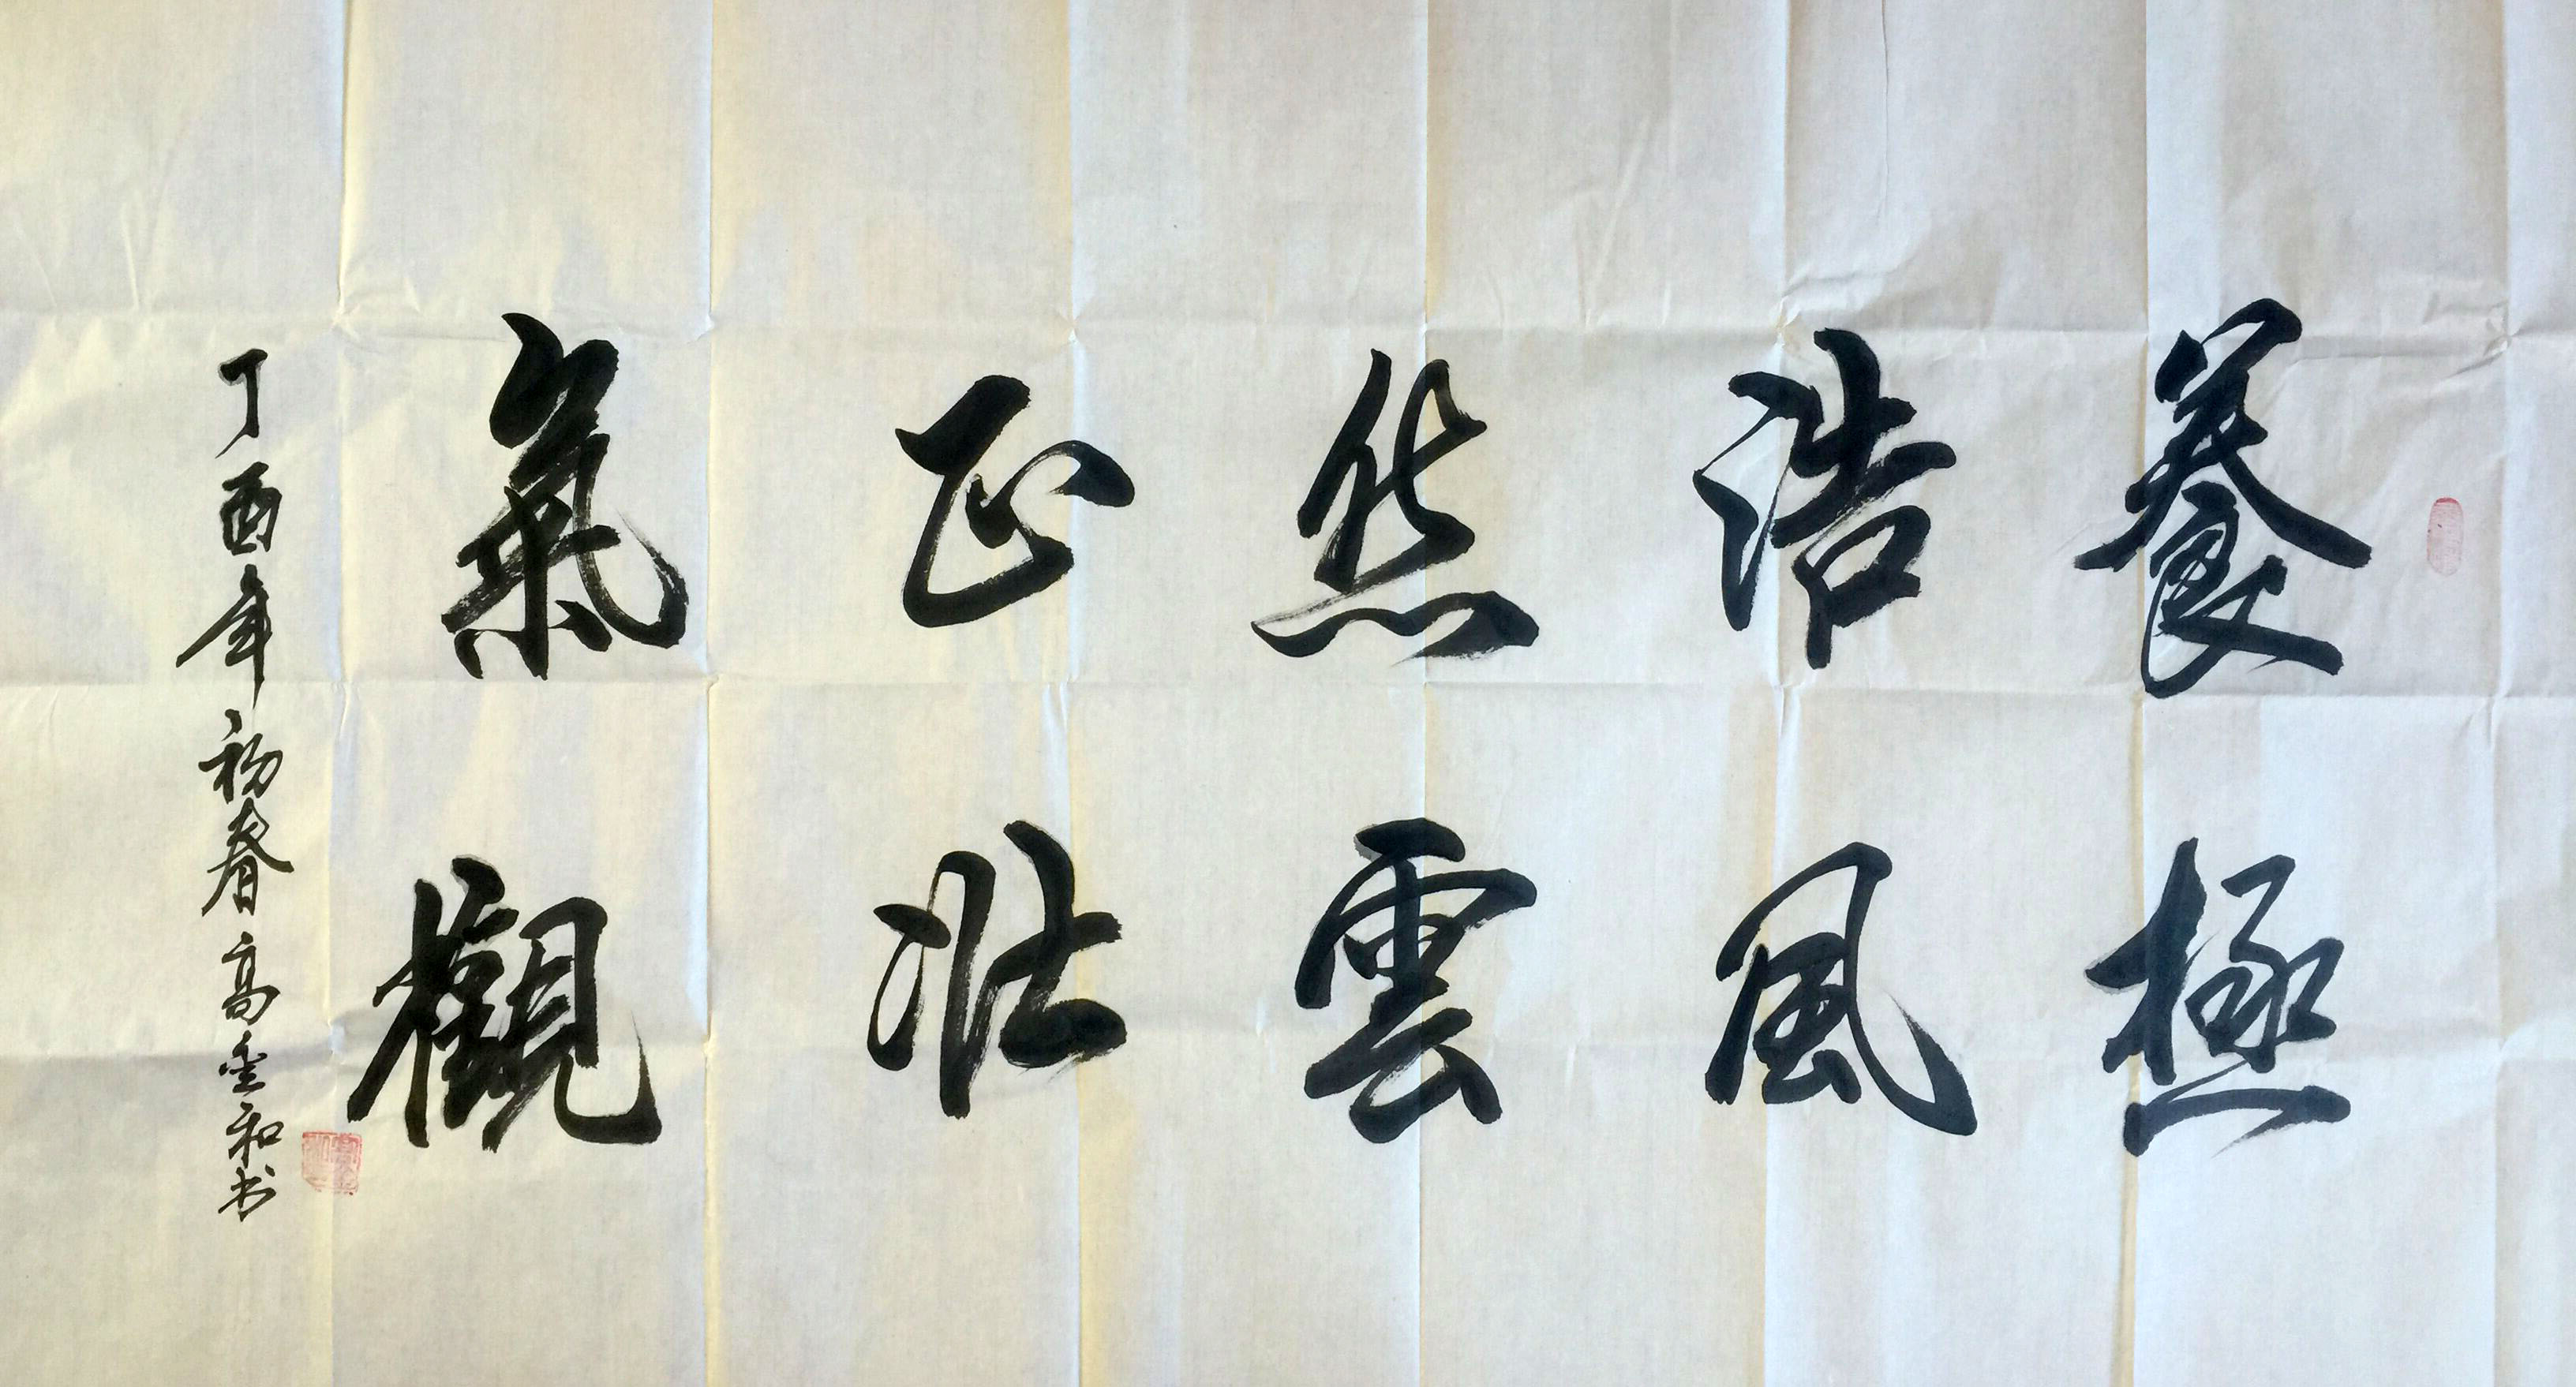 養浩然正氣
極風雲壯觀
丁酉年初春高金和书